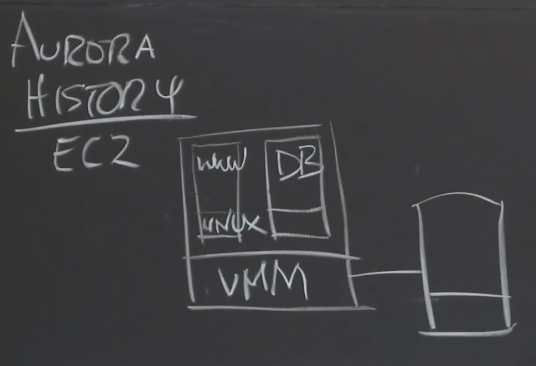 AURORA
HISTORY
EC2
WWW
DB
UNUX
VMM